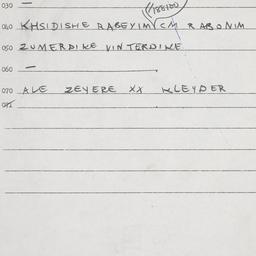 030 —
040 KHSIDISHE RABEYIM CM RABONIM
050 ZUMERDIKE VINTERDIKE
060 —
070 ALE ZEYERE XX KLEYDER